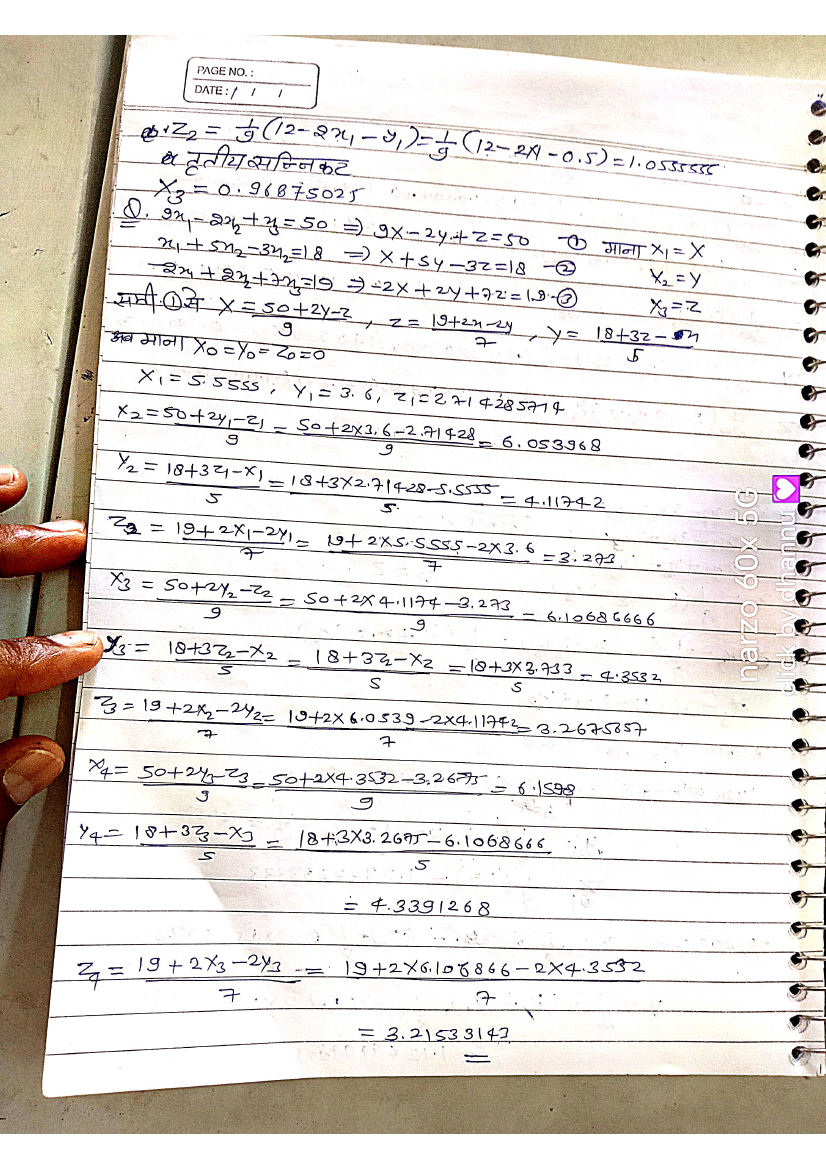 PAGE NO. :
DATE : / / /
Z₂ = 1/9 (12 - 2x₁ - y₁) = 1/9 (12 - 2×1 - 0.5) = 1.0555555
तृतीय सन्निकट
X₃ = 0.96875025
Q. 9x₁ - 2x₂ + x₃ = 50 ⇒ 9x - 2y + z = 50 - ① माना X₁ = X
x₁ + 5x₂ - 3x₂ = 18 ⇒ x + 5y - 3z = 18 - ② X₂ = Y
-2x₁ + 2x₂ + 7x₃ = 19 ⇒ -2x + 2y + 7z = 19 - ③ X₃ = Z
समी ① से X = (50 + 2y - z)/9 , z = (19 + 2x - 2y)/7 , y = (18 + 3z - x)/5
अब माना X₀ = Y₀ = Z₀ = 0
X₁ = 5.5555 , Y₁ = 3.6, Z₁ = 2.714285714
X₂ = (50 + 2y₁ - z₁)/9 = (50 + 2×3.6 - 2.71428)/9 = 6.053968
Y₂ = (18 + 3z₁ - x₁)/5 = (18 + 3×2.71428 - 5.5555)/5 = 4.11742
Z₂ = (19 + 2x₁ - 2y₁)/7 = (19 + 2×5.5555 - 2×3.6)/7 = 3.273
X₃ = (50 + 2y₂ - z₂)/9 = (50 + 2×4.1174 - 3.273)/9 = 6.10686666
Y₃ = (18 + 3z₂ - x₂)/5 = (18 + 3z₂ - x₂)/5 = (18 + 3×3.733)/5 = 4.3532
Z₃ = (19 + 2x₂ - 2y₂)/7 = (19 + 2×6.0539 - 2×4.11742)/7 = 3.2675657
X₄ = (50 + 2y₃ - z₃)/9 = (50 + 2×4.3532 - 3.2675)/9 = 6.1598
Y₄ = (18 + 3z₃ - x₃)/5 = (18 + 3×3.2675 - 6.1068666)/5
= 4.3391268
Z₄ = (19 + 2x₃ - 2y₃)/7 = (19 + 2×6.106866 - 2×4.3532)/7
= 3.21533143
narzo 60x 5G
click by dhannu